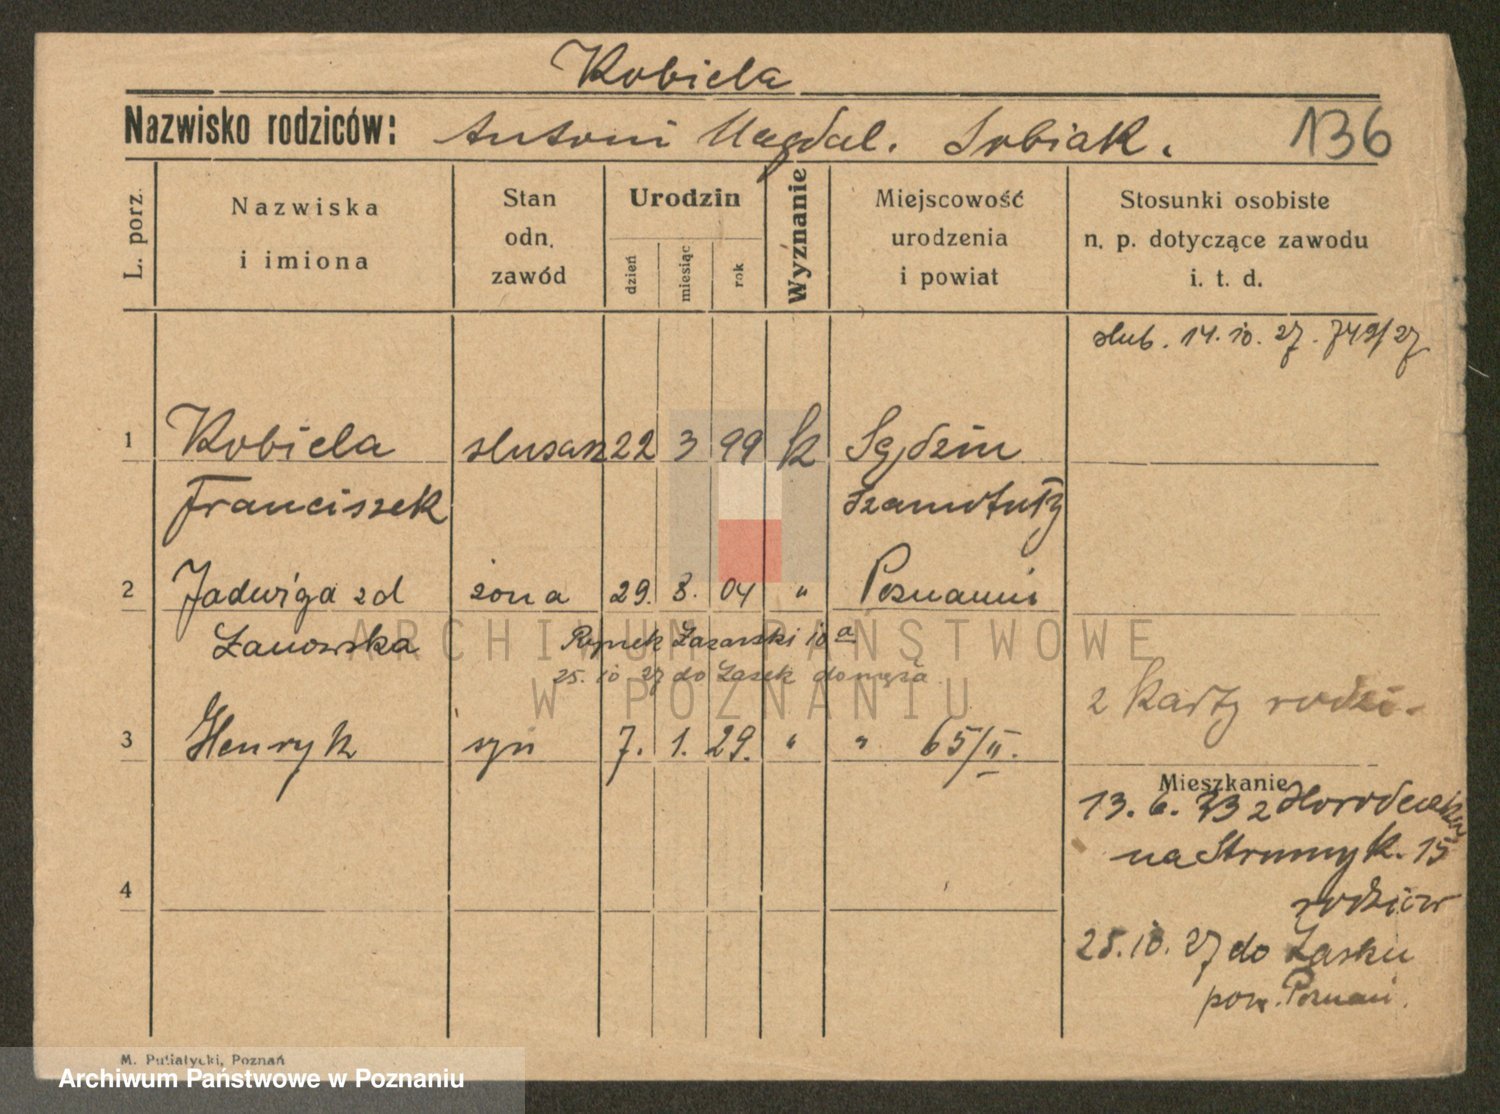 Kobiela
Nazwisko rodziców: Antoni Magdal. Sobiak. 136
L. porz.
Nazwiska
i imiona
Stan
odn.
zawód
Urodzin
dzień
miesiąc
rok
Wyznanie
Miejscowość
urodzenia
i powiat
Stosunki osobiste
n. p. dotyczące zawodu
i. t. d.
slub. 14. 10. 27. 749/27
1 Kobiela slusarz 22 3 99 k
Franciszek Szamotuły
2 Jadwiga zd żona 29. 8. 04 " Poznaniu
Łanowska Rynek Łazarski 10 a
25. 10 27 do Łasek do męża
2 Karty rodzi.
3 Henryk syn 7. 1. 29. " " 65/II.
Mieszkanie
13. 6. 33 z
na Strumyk. 15
rodziców
25. 10. 27 do Łasku
pow. Poznań.
4
M. Putiatycki, Poznań
ARCHIWUM PAŃSTWOWE
W POZNANIU
Archiwum Państwowe w Poznaniu